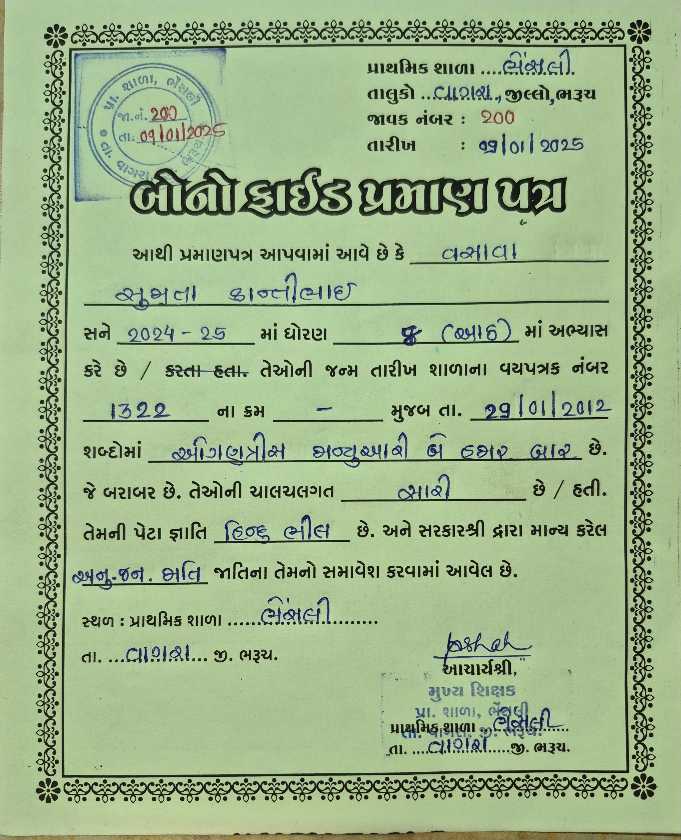 પ્રાથમિક શાળા ....ભેંસલી.
તાલુકો ..વાગરા., જીલ્લો, ભરૂચ
જાવક નંબર : 200
તારીખ : 09/01/2025
પ્રા. શાળા, ભેંસલી
જા.નં. 200
તા. 09/01/2025
તા. વાગરા
બોનોફાઈડ પ્રમાણ પત્ર
આથી પ્રમાણપત્ર આપવામાં આવે છે કે વસાવા
કાન્તીભાઈ
સને 2024-25 માં ધોરણ 8 (આઠ) માં અભ્યાસ
કરે છે / કરતા હતા. તેઓની જન્મ તારીખ શાળાના વયપત્રક નંબર
1322 ના ક્રમ - મુજબ તા. 29/01/2012
શબ્દોમાં ઓગણત્રીસ જાન્યુઆરી બે હજાર બાર છે.
જે બરાબર છે. તેઓની ચાલચલગત સારી છે / હતી.
તેમની પેટા જ્ઞાતિ હિન્દુ ભીલ છે. અને સરકારશ્રી દ્રારા માન્ય કરેલ
અનુ.જન. જાતિ જાતિના તેમનો સમાવેશ કરવામાં આવેલ છે.
સ્થળ : પ્રાથમિક શાળા ......ભેંસલી.........
તા. ...વાગરા... જી. ભરૂચ.
આચાર્યશ્રી,
મુખ્ય શિક્ષક
પ્રા. શાળા, ભેંસલી
પ્રાથમિક શાળા ભેંસલી......
તા. ....વાગરા.....જી. ભરૂચ.